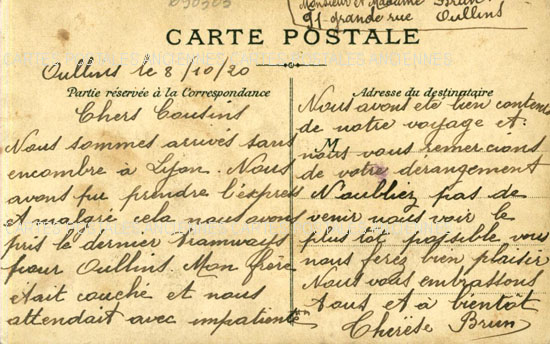 Monsieur et Madame Brun
91 grande rue Oullins
CARTE POSTALE
Oullins le 8/10/20
Partie réservée à la Correspondance
Chers Cousins
Nous sommes arrivés sans
encombre à Lyon. Nous
avons pu prendre l'express
et malgré cela nous avons
pris le dernier tramways
pour Oullins. Mon frère
était couché et nous
attendait avec impatience
Adresse du destinataire
Nous avons été bien contents
de notre voyage et
M
nous vous remercions
de votre dérangement
N'oubliez pas de
venir nous voir le
plus tôt possible vous
nous ferez bien plaisir
Nous vous embrassons
tous et à bientôt
Thérèse Brun